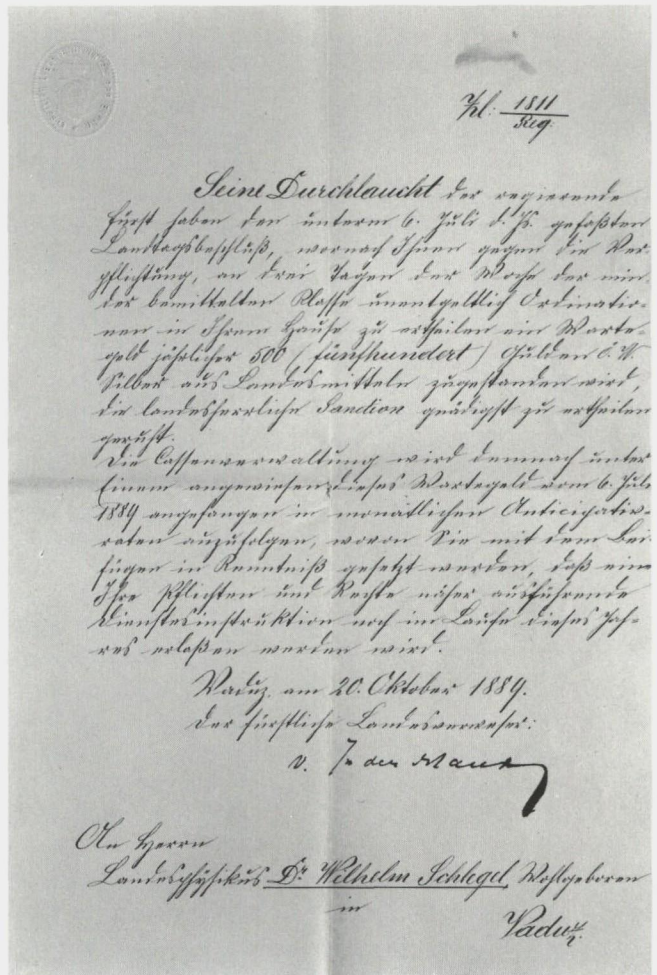 Zl. 1811
Reg.
Seine Durchlaucht der regierende
Fürst haben den unterm 6. Juli d. Js. gefaßten
Landtagsbeschluß, wornach Ihnen gegen die Ver-
pflichtung, an drei Tagen der Woche der min-
der bemittelten Klasse unentgeltlich Ordinatio-
nen in Ihrem Hause zu ertheilen ein Warte-
geld jährlicher 500 (fünfhundert) Gulden ö. W.
Silber aus Landesmitteln zugestanden wird,
die landesherrliche Sanction gnädigst zu ertheilen
geruht.
Die Cassenverwaltung wird demnach unter
Einem angewiesen dieses Wartegeld vom 6. Juli
1889 angefangen in monatlichen Anticipativ-
raten auszufolgen, wovon Sie mit dem Bei-
fügen in Kenntniß gesetzt werden, daß eine
Ihre Pflichten und Rechte näher ausführende
Dienstesinstruktion noch im Laufe dieses Jah-
res erlaßen werden wird.
Vaduz, am 20. Oktober 1889.
Der fürstliche Landesverweser:
v. In der Maur
An Herrn
Landesphysikus Dr. Wilhelm Schlegel, Wohlgeboren
in
Vaduz.